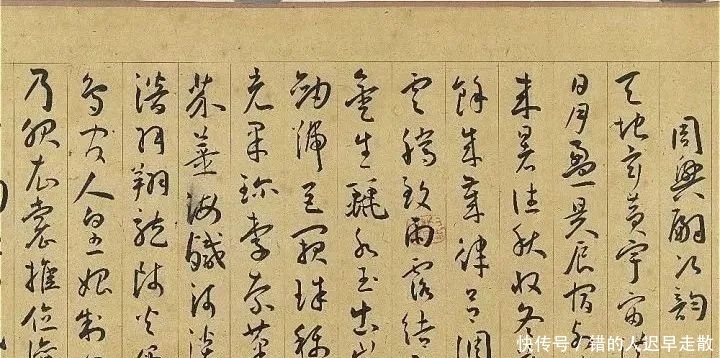 周興嗣次韵
天地玄黄宇宙
日月盈昃辰宿列
来暑往秋收冬
餘成歲律吕调
雲腾致雨露结
金生麗水玉出崑
劒號巨闕珠稱
光果珍李柰菜
芥薑海鹹河淡
潜羽翔龍師火帝
鳥官人皇始制
乃服衣裳推位讓
快传号/错的人迟早走散